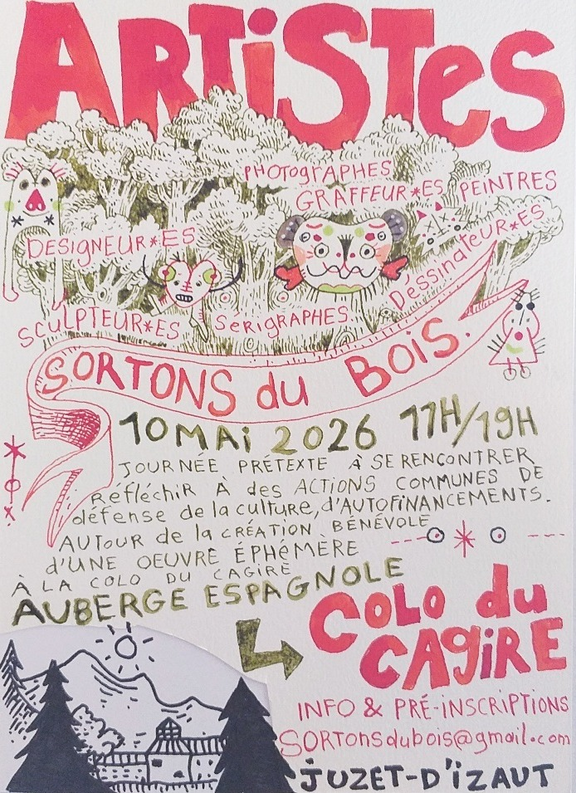 ARTiSTeS
PHOTOGRAPHES
GRAFFEUR*ES PEINTRES
DESIGNEUR*ES
Déssinateur*ES
SCULPTEUR*ES SERIGRAPHES
SORTONS du BOIS.
10 MAi 2026 11H/19H
JOURNÉE PRÉTEXTE À SE RENCONTRER
Réfléchir À des ACTIONS COMMUNES DE
défense de la culture, d'AUTOFINANCEMENTS.
AUTOUR de la CRÉATION BÉNÉVOLE
d'UNE OEUVRE ÉPHÉMÈRE
À LA COLO DU CAGIRE
AUBERGE ESPAGNOLE
COLO du
CAGIRE
INFO & PRÉ-INSCRIPTIONS
SORTONSdubois@gmail.com
JUZET-D'IZAUT